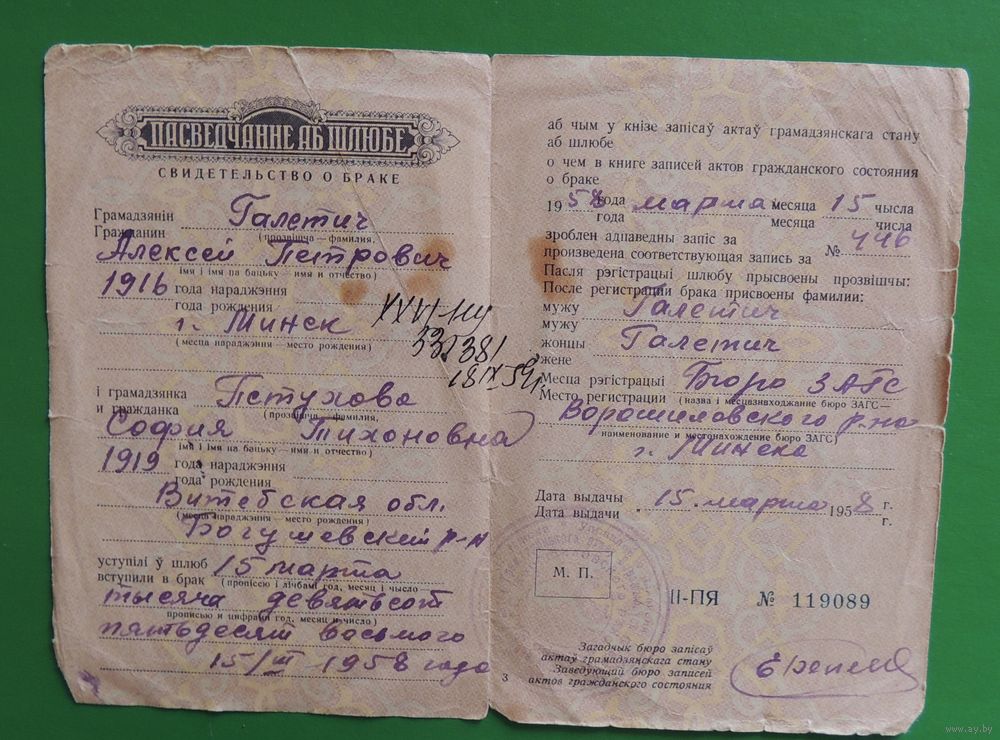 ПАСВЕДЧАННЕ АБ ШЛЮБЕ
СВИДЕТЕЛЬСТВО О БРАКЕ
Грамадзянін
Гражданин Галетич
(прозвішча — фамилия,
Алексей Петрович
імя і імя па бацьку — имя и отчество)
1916 года нараджэння
года рождения
г. Минск
(месца нараджэння — место рождения)
XXVI-НЧ
332381
18 IX 59г.
і грамадзянка
и гражданка Петухова
(прозвішча — фамилия,
София Тихоновна
імя і імя па бацьку — имя и отчество)
1919 года нараджэння
года рождения
Витебская обл.
(месца нараджэння — место рождения)
Богушевский р-н
уступілі ў шлюб
вступили в брак 15 марта
(пропіссю і лічбамі год, месяц і число
тысяча девятьсот
прописью и цифрами год, месяц и число)
пятьдесят восьмого
15/III 1958 года
аб чым у кнізе запісаў актаў грамадзянскага стану
аб шлюбе
о чем в книге записей актов гражданского состояния
о браке
1958 года марта месяца 15 чысла
года месяца числа
зроблен адпаведны запіс за
произведена соответствующая запись за № 446
Пасля рэгістрацыі шлюбу прысвоены прозвішчы:
После регистрации брака присвоены фамилии:
мужу
мужу Галетич
жонцы
жене Галетич
Месца рэгістрацыі Бюро ЗАГС
Место регистрации (назва і месцазнаходжанне бюро ЗАГС —
Ворошиловского р-на
наименование и местонахождение бюро ЗАГС)
г. Минска
Дата выдачы
Дата выдачи „ 15. марта 1958 г.
г.
М. П.
II-ПЯ № 119089
Загадчык бюро запісаў
актаў грамадзянскага стану
Заведующий бюро записей
актов гражданского состояния
3
www.ay.by